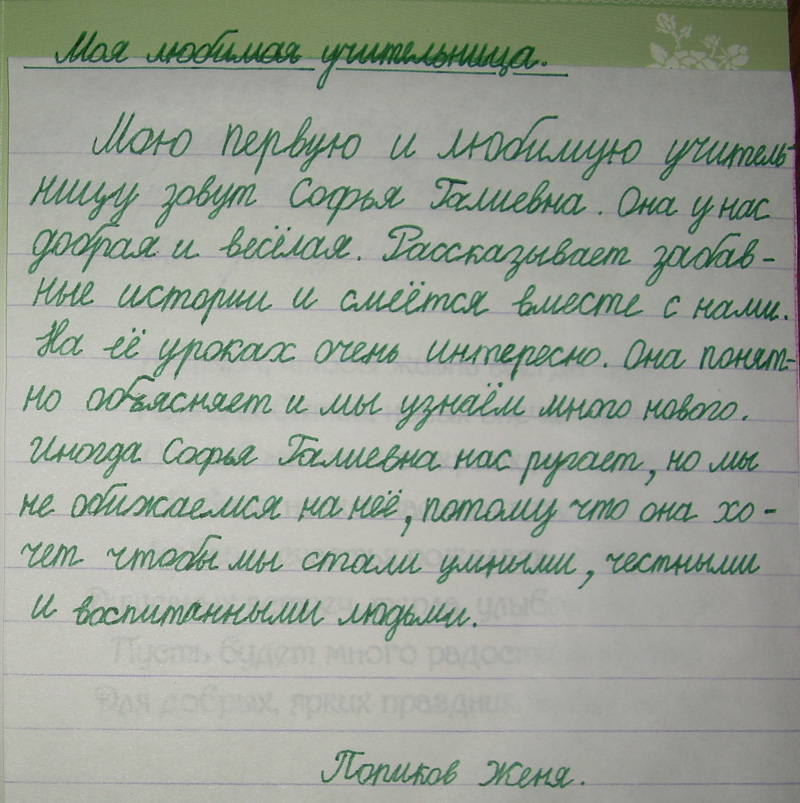 Моя любимая учительница.
Мою первую и любимую учитель-
ницу зовут Софья Галиевна. Она у нас
добрая и весёлая. Рассказывает забав-
ные истории и смеётся вместе с нами.
На её уроках очень интересно. Она понят-
но объясняет и мы узнаём много нового.
Иногда Софья Галиевна нас ругает, но мы
не обижаемся на неё, потому что она хо-
чет чтобы мы стали умными, честными
и воспитанными людьми.
Пусть будет много радост
Для добрых, ярких праздник
Попиков Женя.